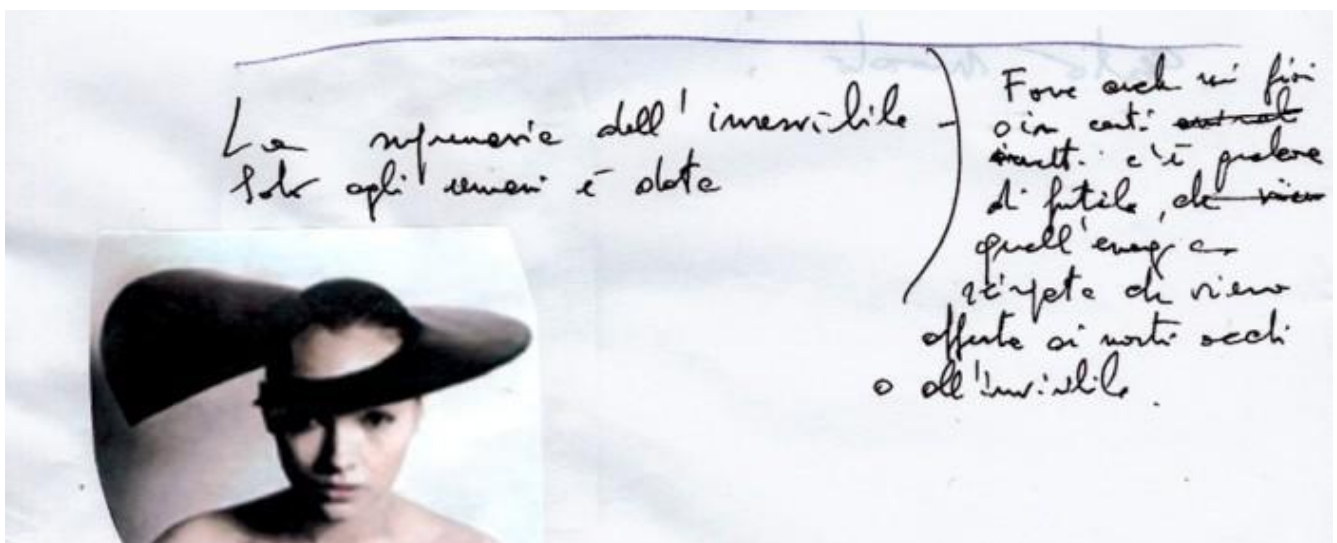 La supremazia dell'invisibile
solo agli umani è data
Forse anche nei fiori
o in certi
c'è qualcosa
di futile, che
quell'energia
che viene
offerta ai nostri occhi
o all'invisibile.